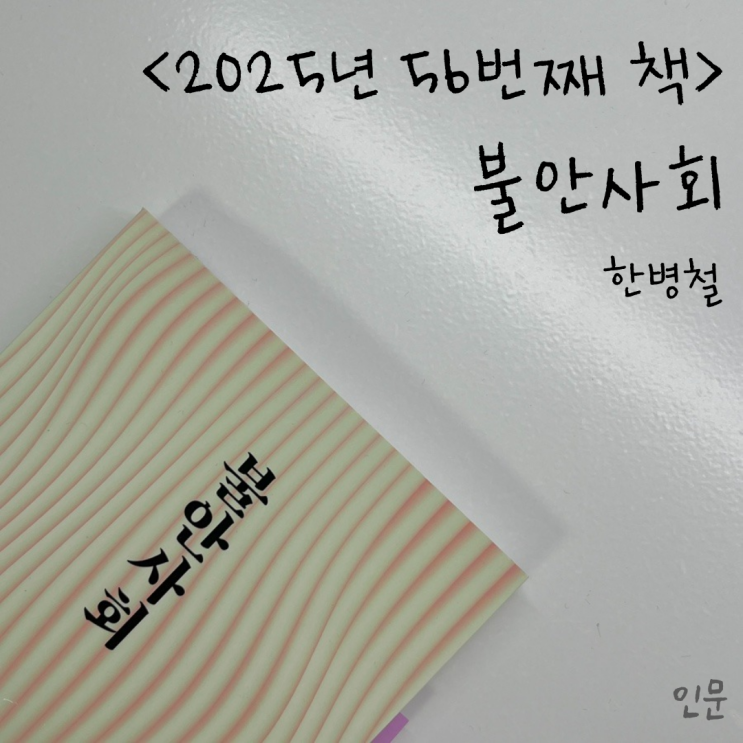 <2025년 56번째 책>
불안사회
한병철
불안사회
인문